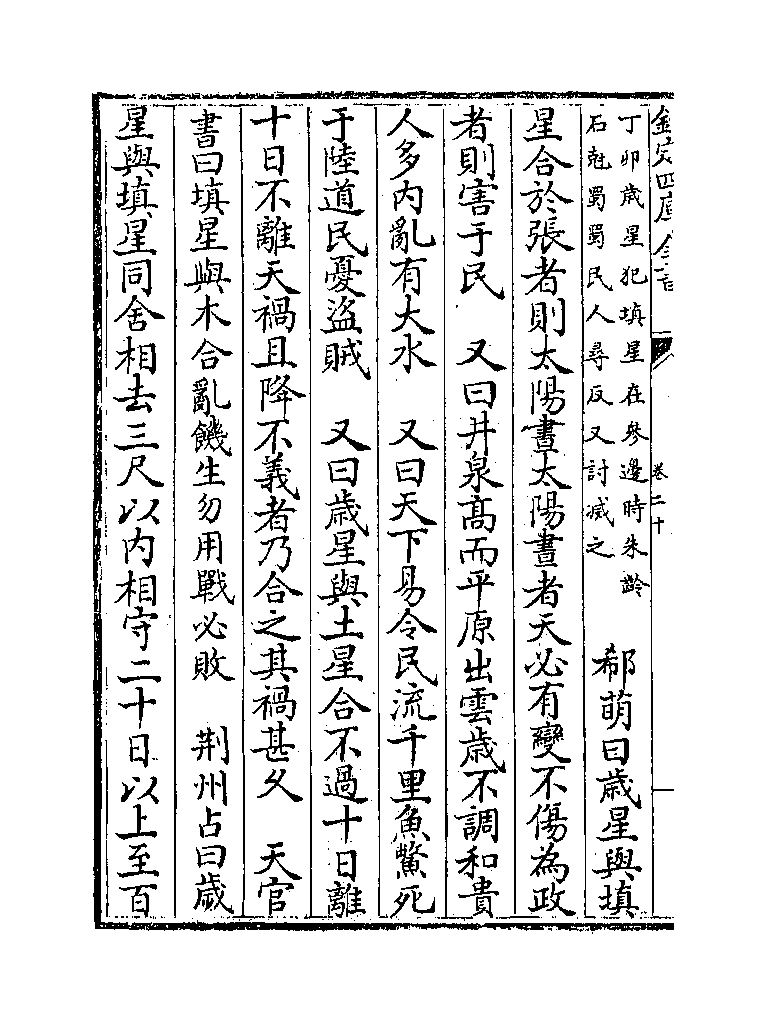 欽定四庫全書 卷二十
丁卯歲星犯填星在參邊時朱齡
石尅蜀蜀民人尋反又討滅之
郗萌曰歲星與填
星合於張者則太陽書太陽晝者天必有變不傷為政
者則害于民 又曰井泉髙而平原出雲歲不調和貴
人多内亂有大水 又曰天下易令民流千里魚鱉死
于陸道民憂盜賊 又曰歲星與土星合不過十日離
十日不離天禍且降不義者乃合之其禍甚乆 天官
書曰填星與木合亂饑生勿用戰必敗 荆州占曰歲
星與填星同舍相去三尺以内相守二十日以上至百